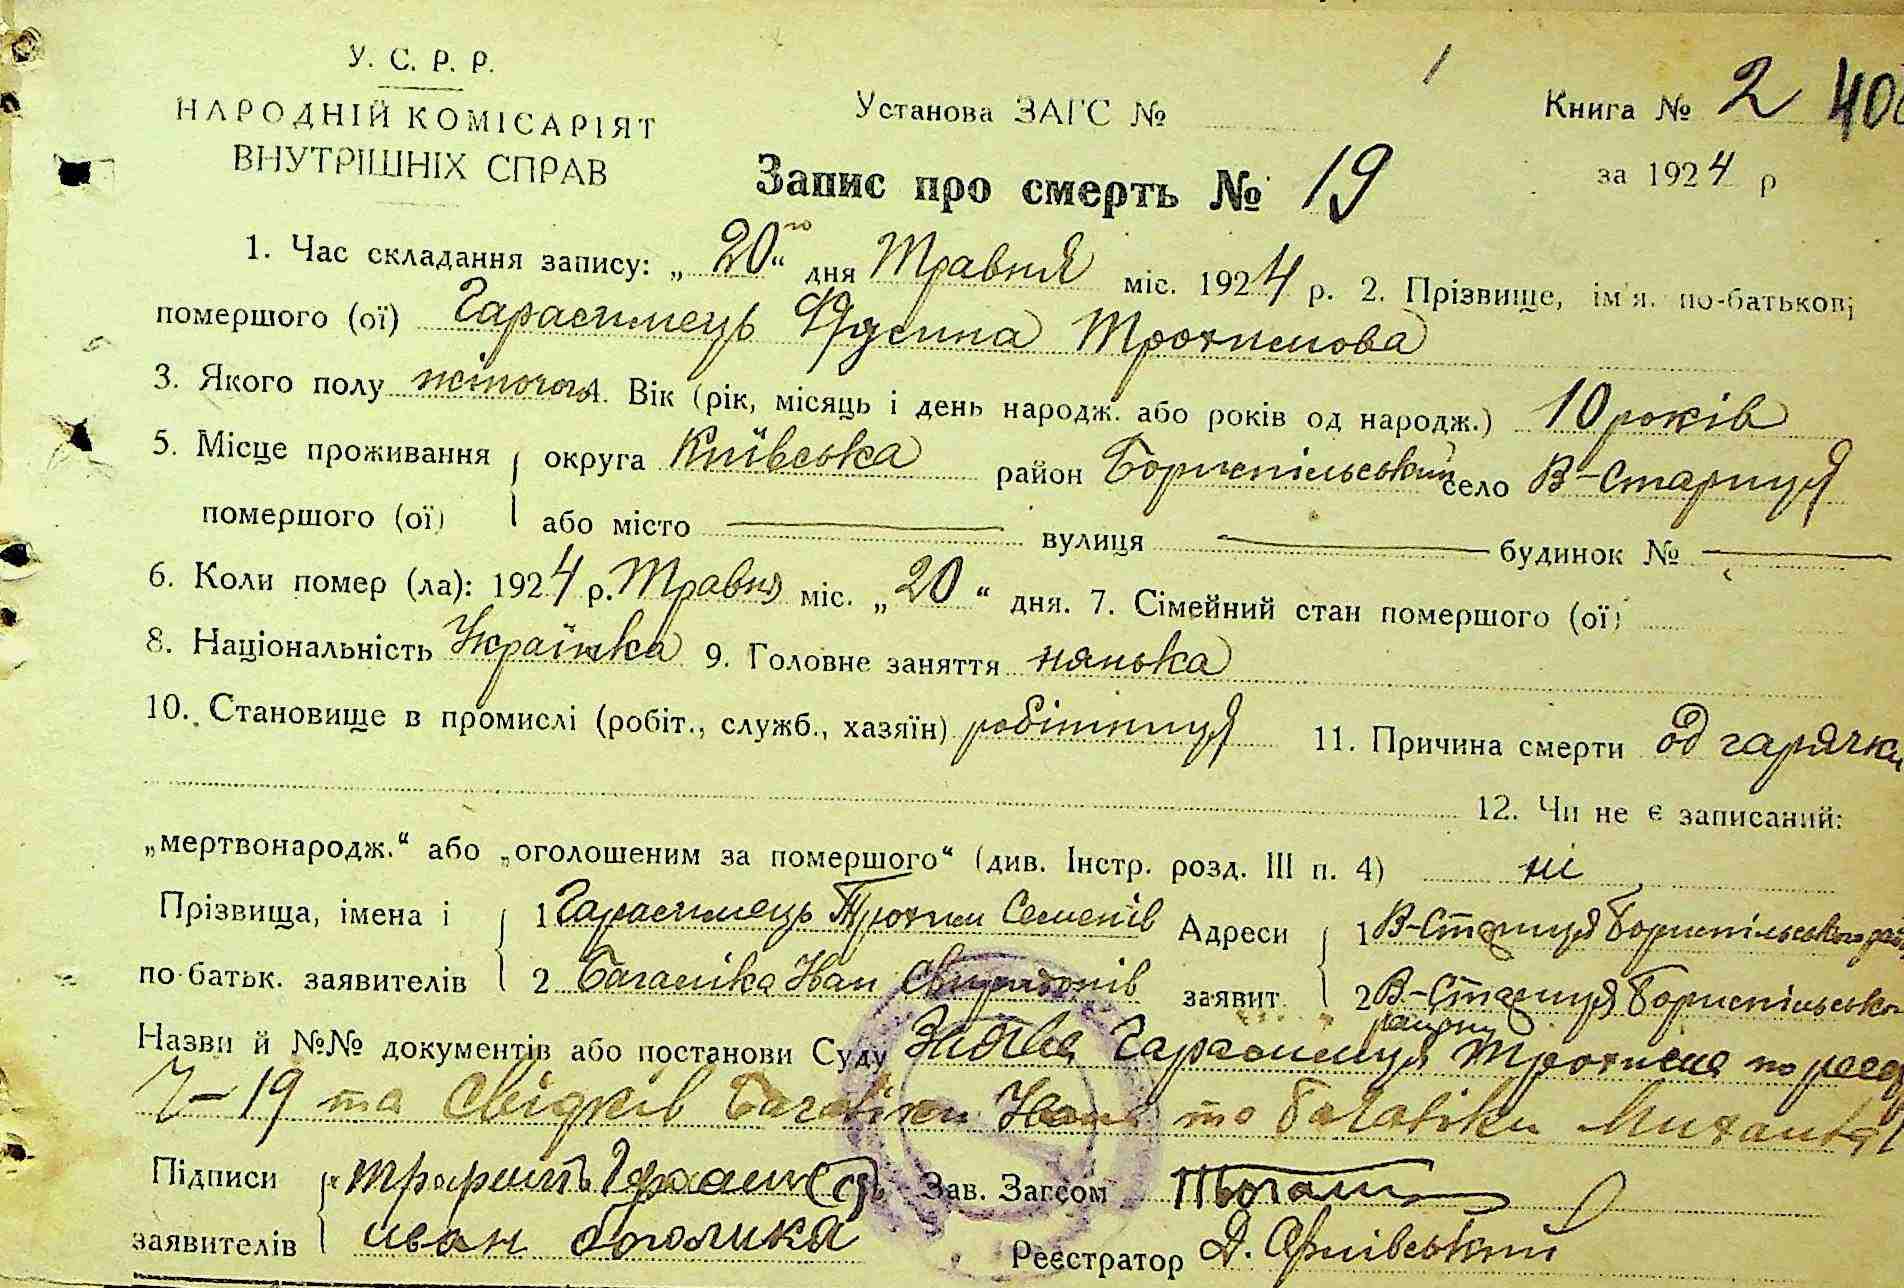 У. С. Р. Р.
НАРОДНІЙ КОМІСАРІЯТ
ВНУТРІШНІХ СПРАВ
Установа ЗАГС №
Книга № 2
за 1924 р
Запис про смерть № 19
1. Час складання запису: „20го“ дня Травня міс. 1924 р. 2. Прізвище, ім'я, по-батькові
помершого (ої) Гарасимець Трохимова
3. Якого полу жіночого 4. Вік (рік, місяць і день народж. або років од народж.) 10 років
5. Місце проживання помершого (ої) округа Київська район Бориспільський село В-Стариця
або місто — вулиця — будинок № —
6. Коли помер (ла): 1924 р. Травня міс. „20“ дня. 7. Сімейний стан помершого (ої)
8. Національність Українка 9. Головне заняття нянька
10. Становище в промислі (робіт., служб., хазяїн) робітниця 11. Причина смерти од гарячки
12. Чи не є записаний:
„мертвонародж.“ або „оголошеним за помершого“ (див. Інстр. розд. III п. 4) ні
Прізвища, імена і по-батьк. заявителів
1 Гарасимець Трохим Семенів
2 Багаліка Іван Свиридонів
Адреси заявит.
1 В-Стариця Бориспільського
2 В-Стариця Бориспільсько
району
Назви й №№ документів або постанови Суду Заява Гарасимця Трохима по
7-19 та свідків Івана та
Підписи заявителів
Іван боголика
Зав. Загсом
Реєстратор Д.